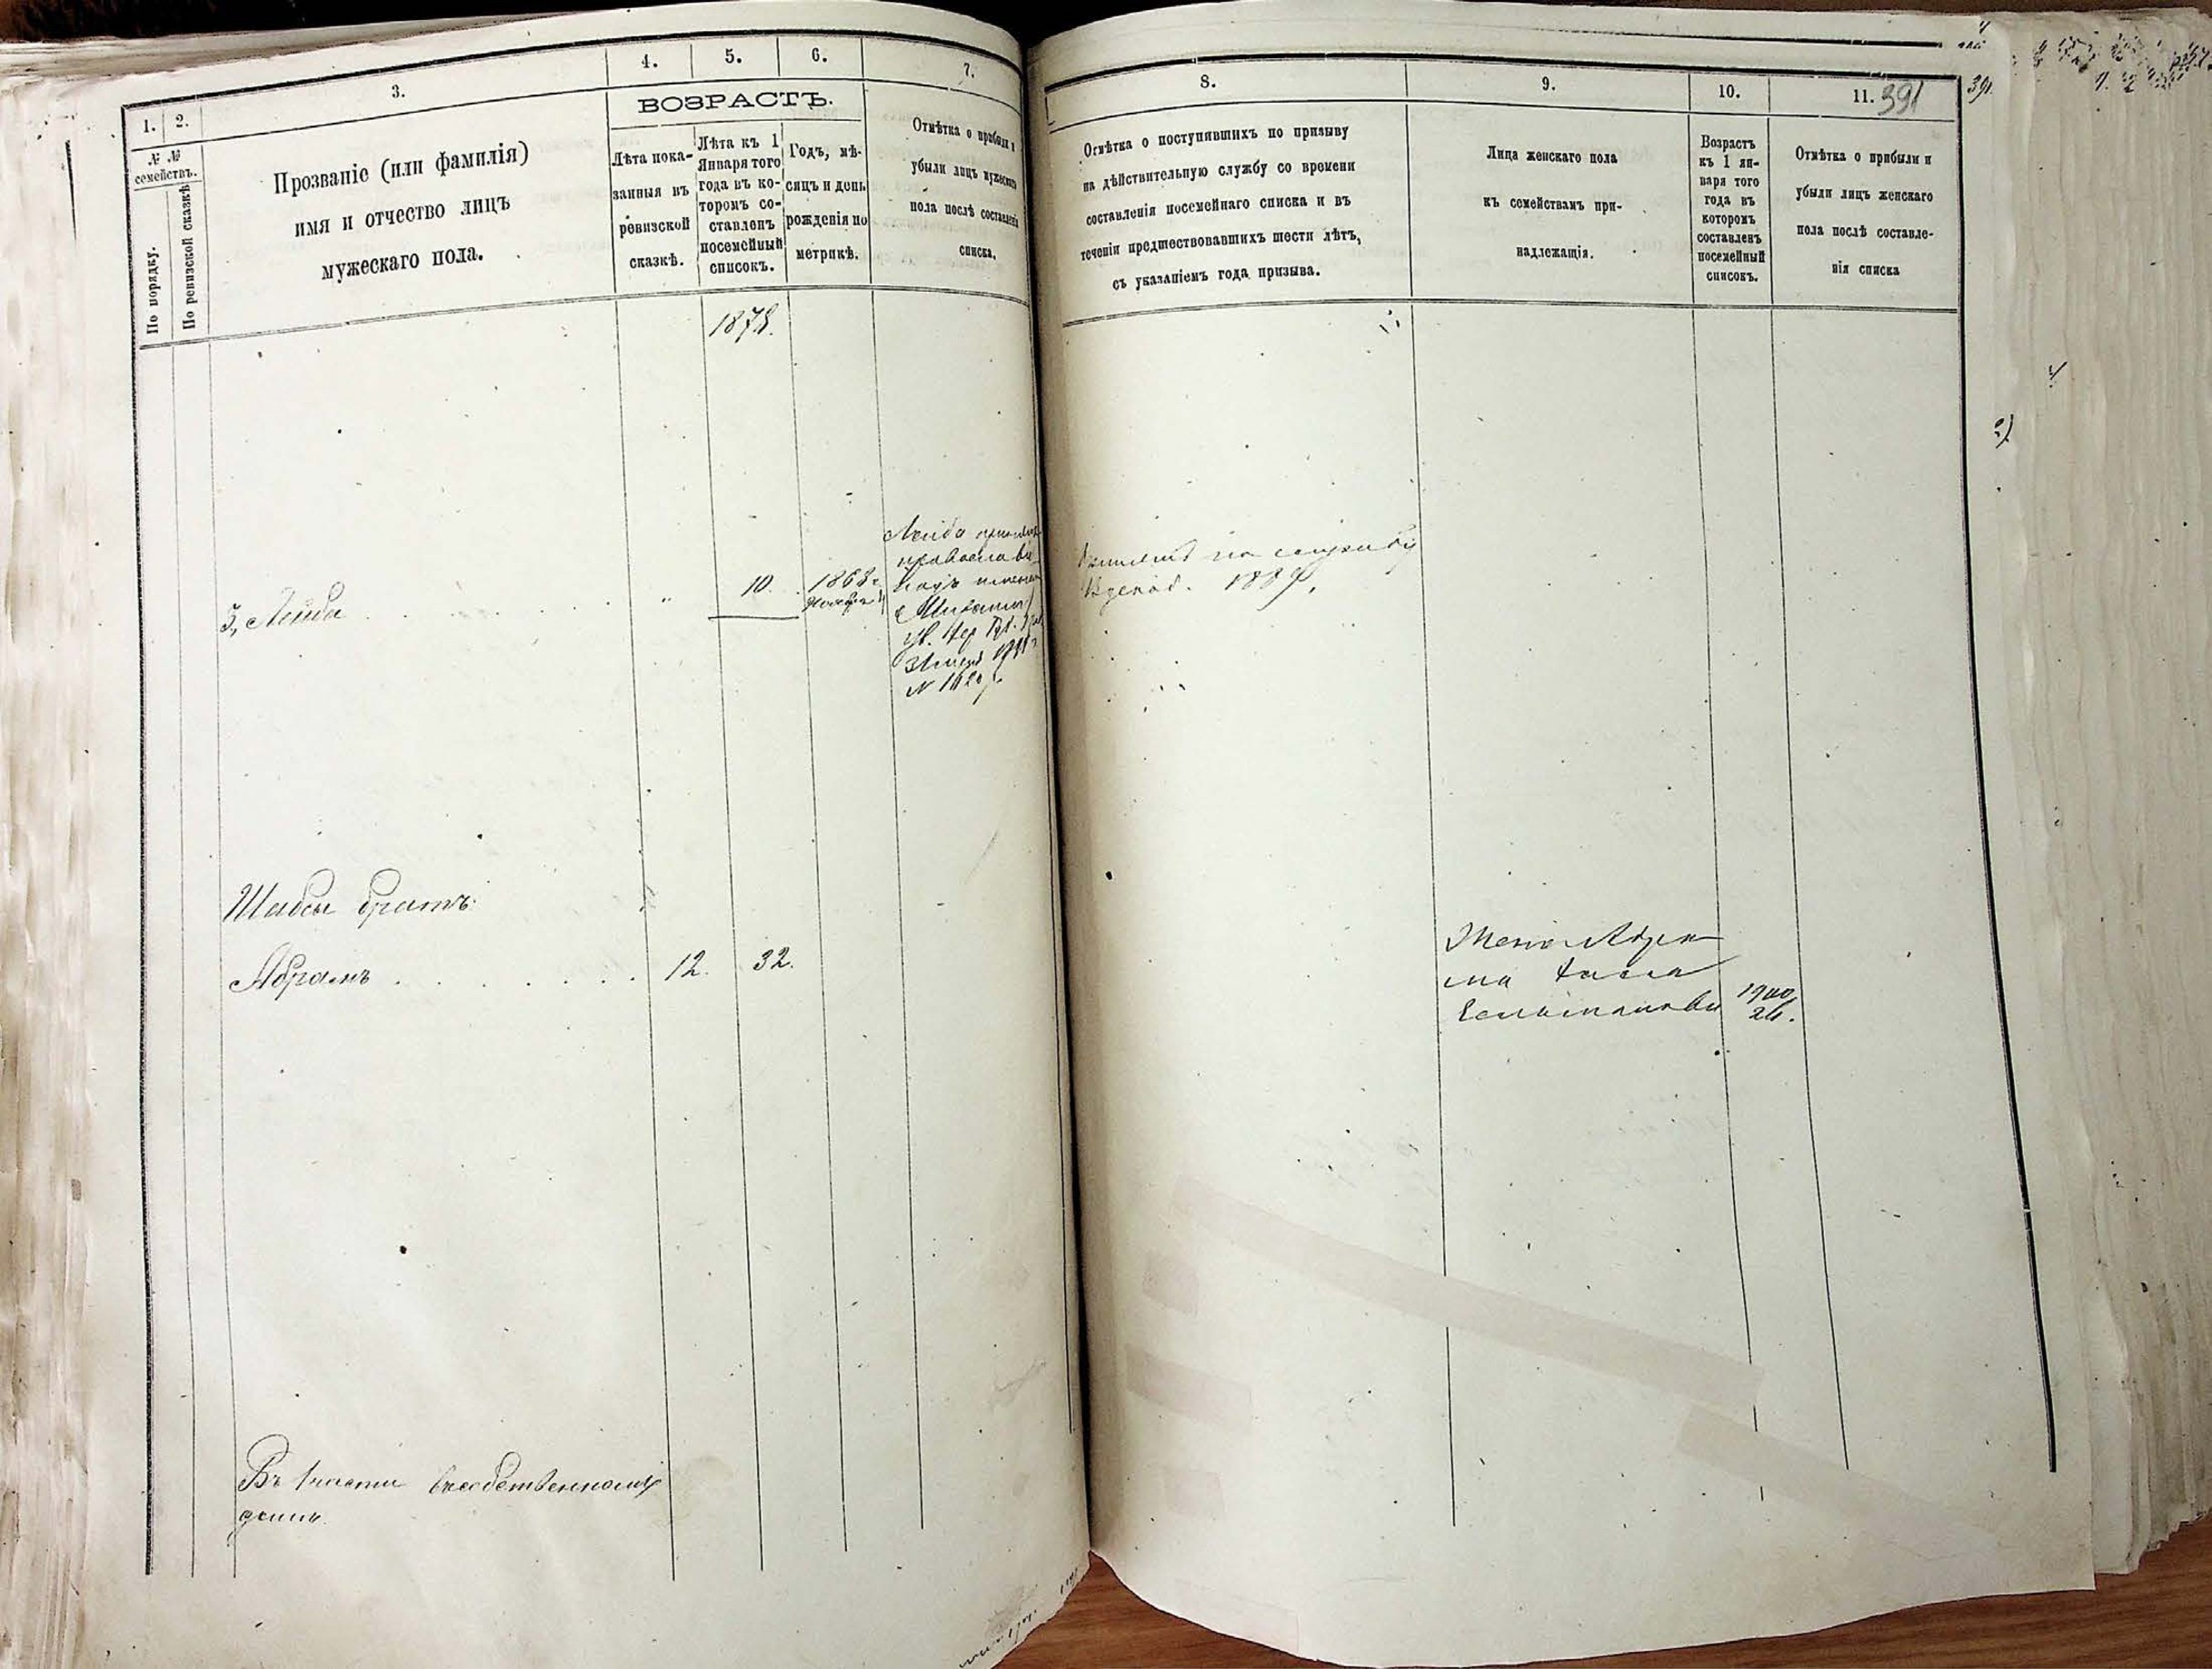 1.
2.
3.
4.
5.
6.
7.
ВОЗРАСТЪ.
№ №
семействъ.
По порядку.
По ревизской сказкѣ
Прозваніе (или фамилія)
имя и отчество лицъ
мужескаго пола.
Лѣта пока-
занныя въ
ревизской
сказкѣ.
Лѣта къ 1
Января того
года въ ко-
торомъ со-
ставленъ
посемейный
списокъ.
Годъ, мѣ-
сяцъ и день
рожденія по
метрикѣ.
Отмѣтка о прибыли и
убыли лицъ мужескаго
пола послѣ составленія
списка.
1878.
3, Лейба
"
10.
1868 г.
Лейба
православі
Михаилъ
№
Шабсы братъ:
Абрамъ
12.
32.
Въ 1 части въ собственномъ
домѣ
8.
9.
10.
11.
391
Отмѣтка о поступившихъ по призыву
на дѣйствительную службу со времени
составленія посемейнаго списка и въ
теченіи предшествовавшихъ шести лѣтъ,
съ указаніемъ года призыва.
Лица женскаго пола
къ семействамъ при-
надлежащія.
Возрастъ
къ 1 ян-
варя того
года въ
которомъ
составленъ
посемейный
списокъ.
Отмѣтка о прибыли и
убыли лицъ женскаго
пола послѣ составле-
нія списка
на службу
Жена Абра
ма
1900
26.
391